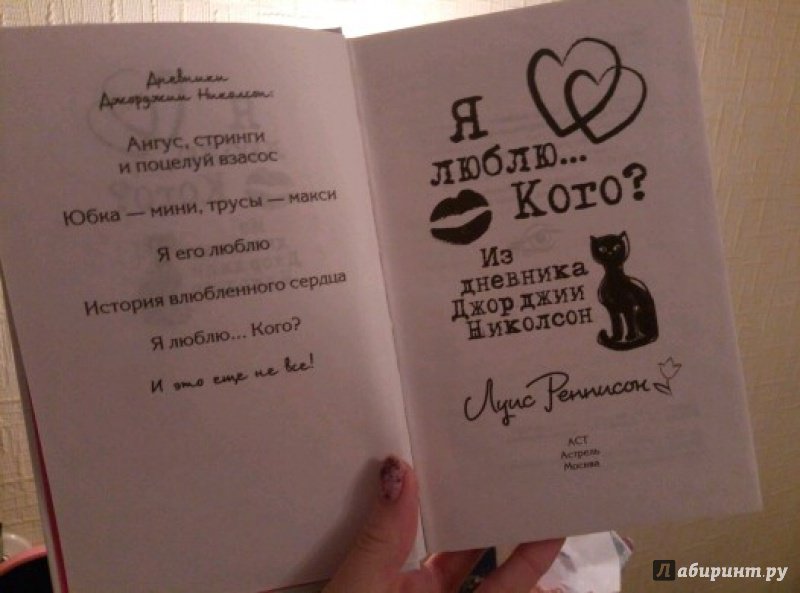 Дневники
Джорджии Николсон:
Ангус, стринги
и поцелуй взасос
Юбка — мини, трусы — макси
Я его люблю
История влюбленного сердца
Я люблю... Кого?
И это еще не все!
Я
люблю...
Кого?
Из
дневника
Джорджии
Николсон
Луис Реннисон
АСТ
Астрель
Москва
Лабиринт.ру